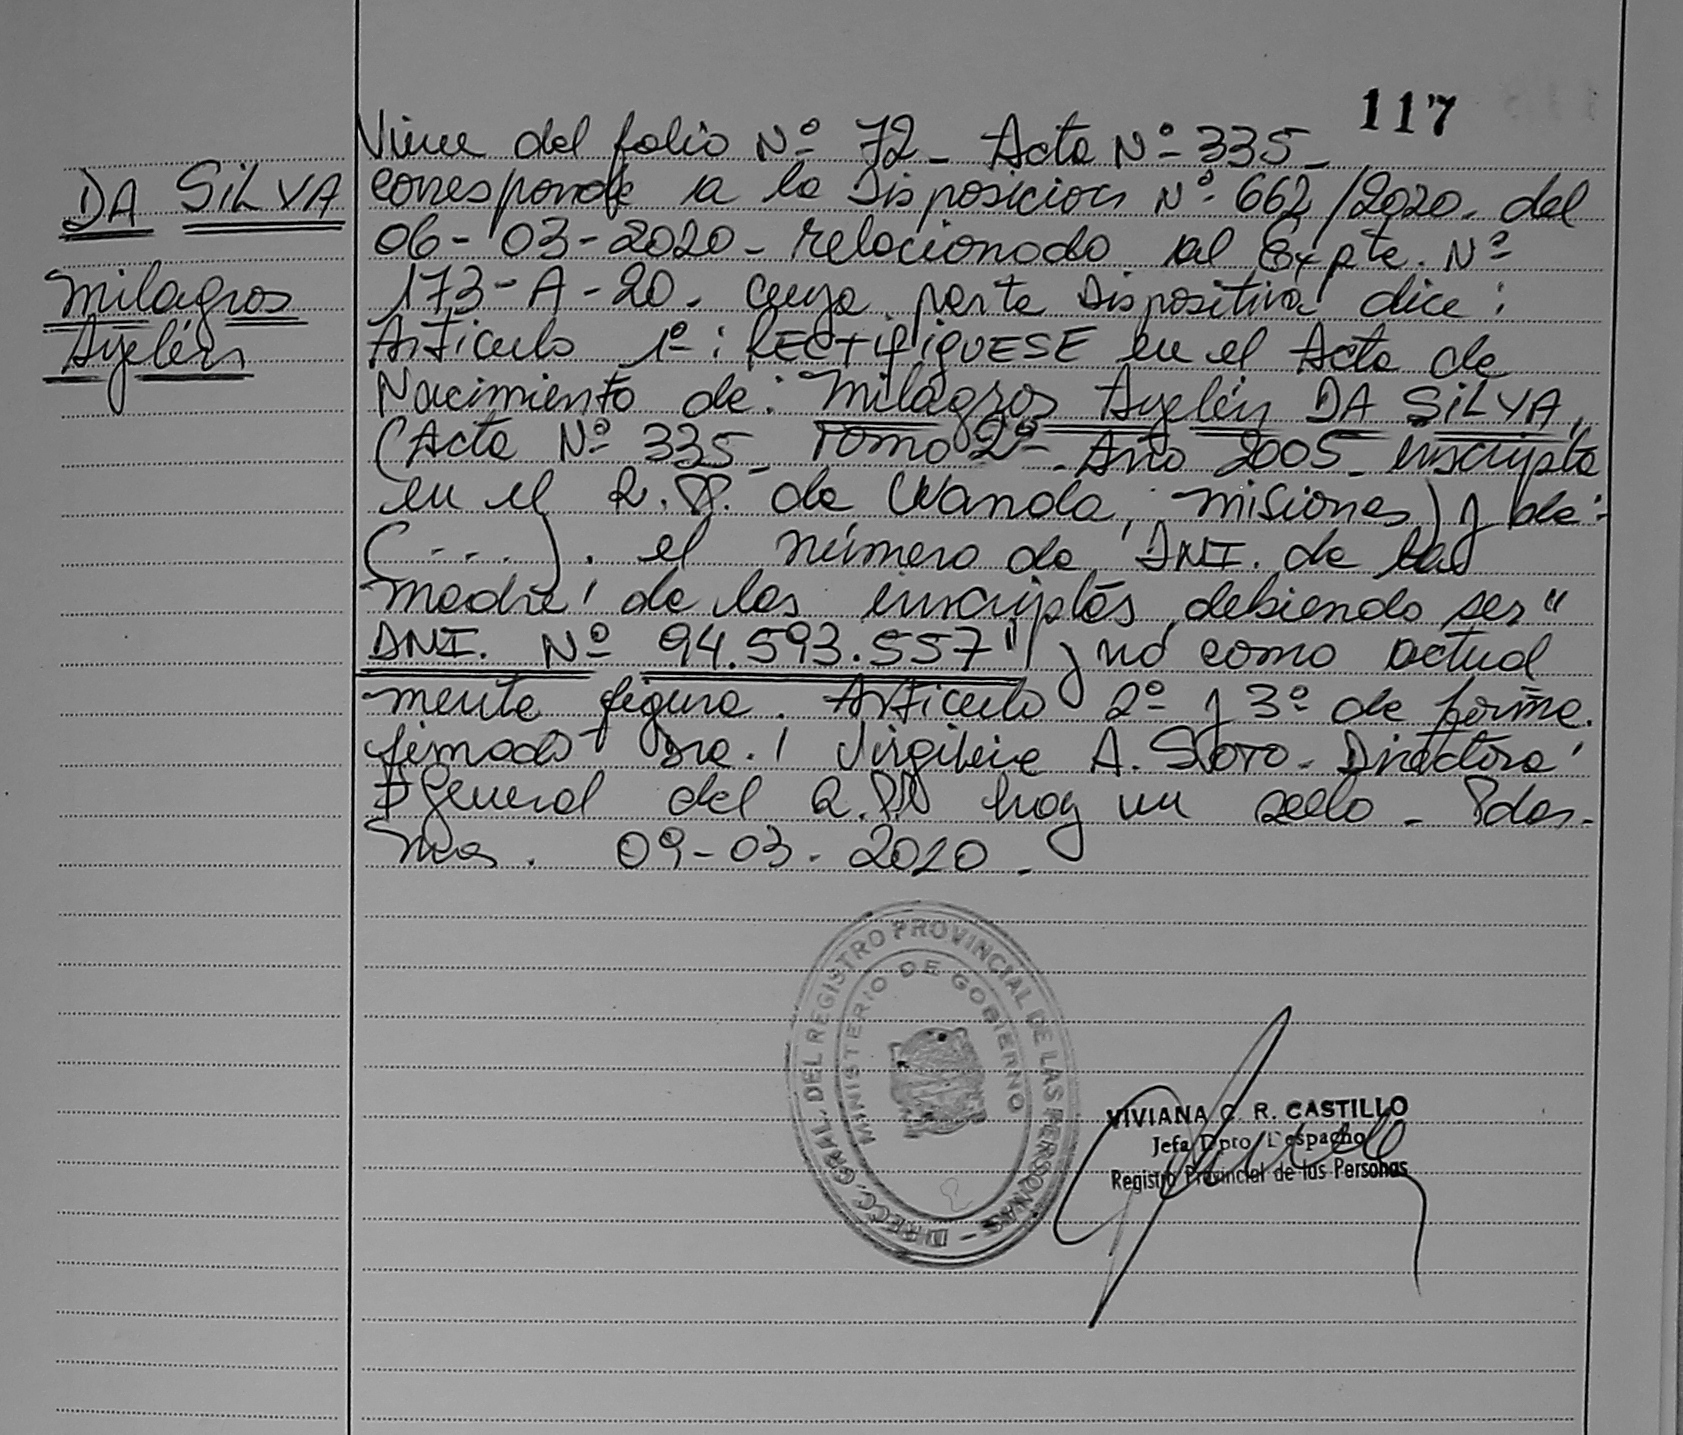 117
Viene del folio Nº 72 - Acta Nº 335 -
DA SILVA
Milagros
Ayelén
corresponde a la Disposicion Nº 662/2020. del
06-03-2020 - relacionado al Expte. Nº
173-A-20. cuya parte Dispositiva dice:
Articulo 1º: RECTIFIQUESE en el Acta de
Nacimiento de: Milagros Ayelén DA SILVA,
(Acta Nº 335 - Tomo 2º - Año 2005 - inscripta
en el R.P. de Wanda, Misiones) y de:
(....). el número de DNI. de la
madre de las inscriptas, debiendo ser "
DNI. Nº 94.593.557" y no como actual
mente figura. Articulo 2º y 3º de forma.
firmado Dra. Virginia A. SOTO - Directora
General del R.PP hay un sello - Pdas.
Mnes. 09-03-2020.
DIRECC. GRAL. DEL REGISTRO PROVINCIAL DE LAS PERSONAS -
MINISTERIO DE GOBIERNO
VIVIANA C. R. CASTILLO
Jefa Dpto. Despacho
Registro Provincial de las Personas